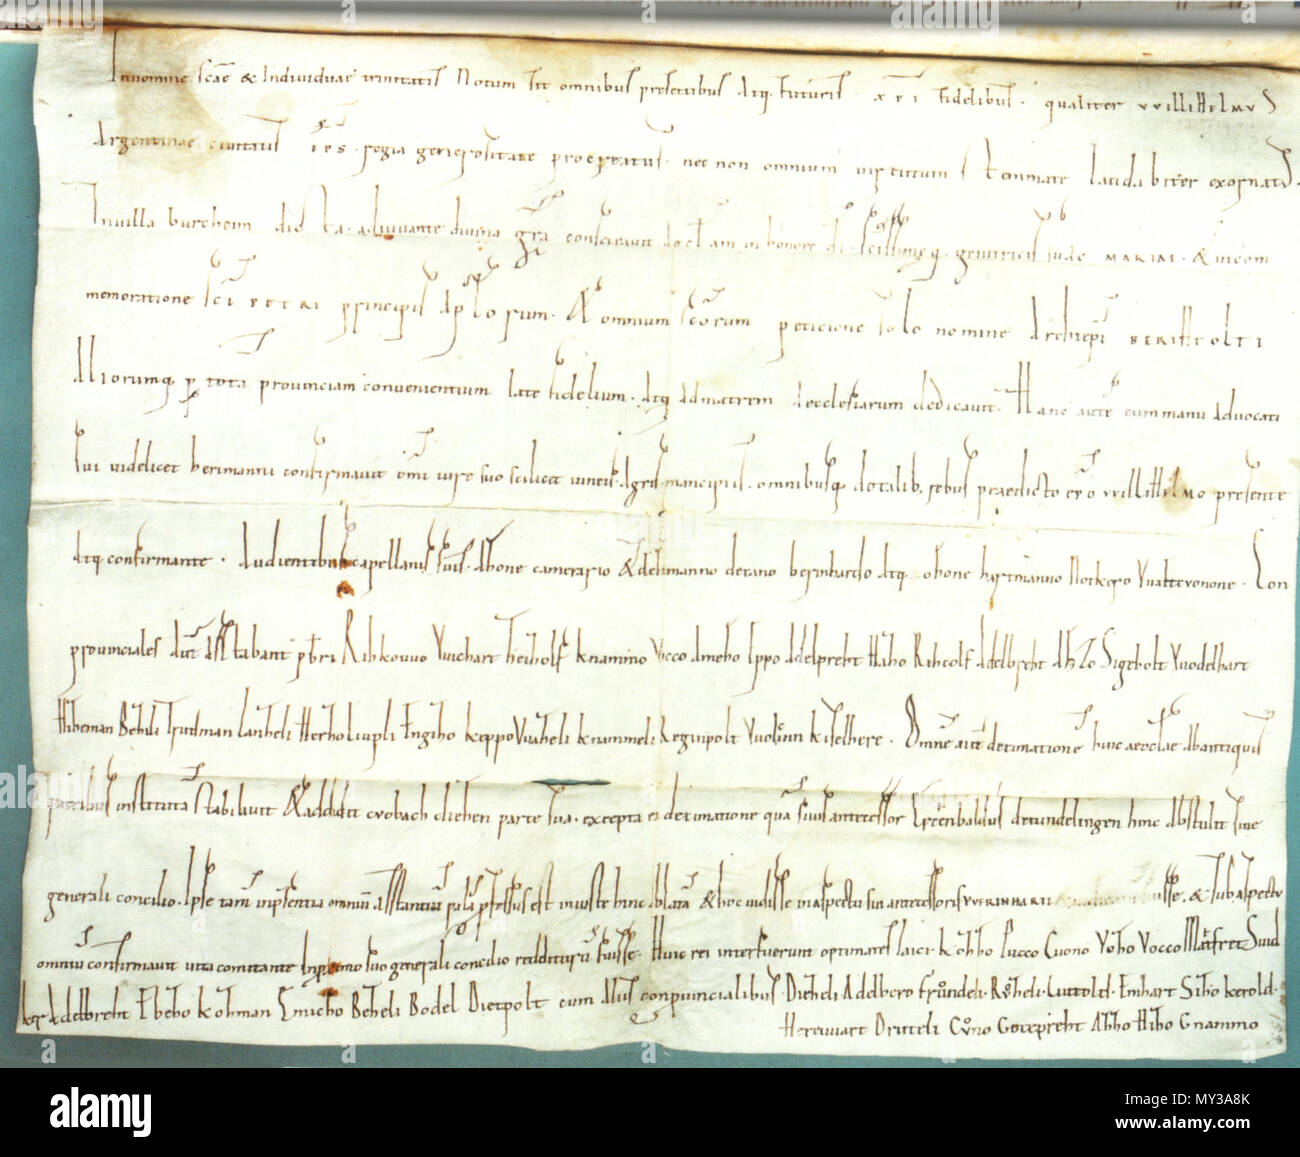 In nomine scae & individuae trinitatis Notum sit omnibus presentibus atq. futuris xpi fidelibus. qualiter VVILLIHELMVS
Argentinae civitatis eps. regia generositate procreatus. nec non omnium virtutum stemmate laudabiliter exornatus.
In villa burcheim dicta. adiuvante divina gra consecravit aecclam in honore di. scissimeq. genitricis suae MARIAE. & in com
memoratione sci PETRI principis aplorum. & omnium scorum peticione solo nomine Archiepi BERIHTOLTI
Aliorumq. p tota provinciam convenientium late fidelium. atq. ad matrem aecclesiarum dedicavit. Hanc aute cum manu advocati
sui videlicet herimanni confirmavit omi iure suo scilicet vineis. agris mancipiis. omnibusq. dotalib. rebus praedicto epo VVILLIHELMO presente
atq. confirmante. Audientibus capellanis suis. Abone camerario & delimanno decano bernhardo atq. obone hartmanno Notkero Vvaltereonone. Con
provinciales aut asstabant pbri Rihkovvo Vvichart heiholf knamino Vocco Ameho Ippo Adelpreht Haho Riheolf Adelbreht Ahzo Sigebolt Vuodelhart
Hiheman Beheli Trudman Lanheli Herho Liupli Engiho keppo Vvaheli knammeli Reginpolt Vuolvin kiselhere. Omne aut decimatione huic aecclae ab antiquis
patribus instituta stabilivit & addidit crobach diehen parte sua. excepta ei decimatione qua suus antecessor Erchenbaldus de tundelingen huic abstulit sine
generali concilio. Ipse tam in psentia omniu asstantiu pala pfessus est iniuste huic ablata & hoc vidisse in aspectu sui antecessoris VVERINHARII fuisse. & sub aspectu
omniu confirmavit vita comitante In primo suo generali concilio redditurum fuisse. Huic rei interfuerunt optimates laici. kohho Lucco Cuono Voho Vocco Matfret Suid
ker Adelbreht Ebeho kohman Emicho Beheli Bodel Dietpolt cum aliis conpuincialibus Dieheli Adelbero Fruondeli. Ruoheli. Luttold. Emhart Siho kerold.
Herevvart Drutteli Cuono Gotepreht Abbo Hiho Gnammo
alamy
Image ID: MY3A8K
www.alamy.com